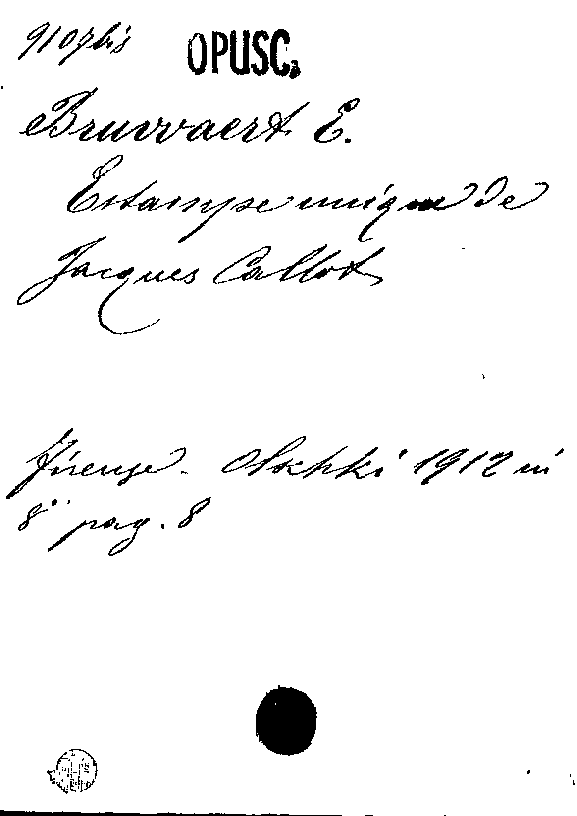 9107bis OPUSC.
Bruwaert E.
Estampe unique de
Jacques Callot
Firenze - Olschki 1912 in
8° pag. 8